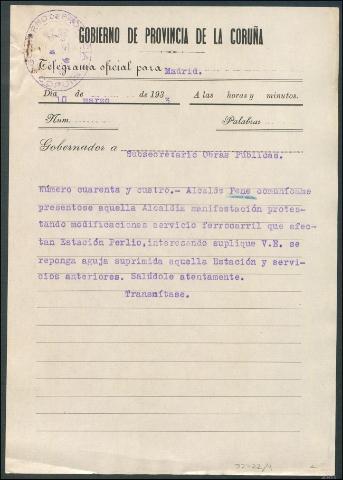 GOBIERNO DE PROVINCIA DE LA CORUÑA
Telegrama oficial para Madrid.
Día 10 marzo de 193 A las horas y minutos.
Núm. Palabras
Gobernador a Subsecretario Obras Públicas.
Número cuarenta y cuatro.- Alcalde Fene comunícame
presentose aquella Alcaldía manifestación protes-
tando modificaciones servicio ferrocarril que afec-
tan Estación Perlio, interesando suplique V.E. se
reponga aguja suprimida aquella Estación y servi-
cios anteriores. Salúdole atentamente.
Transmítase.